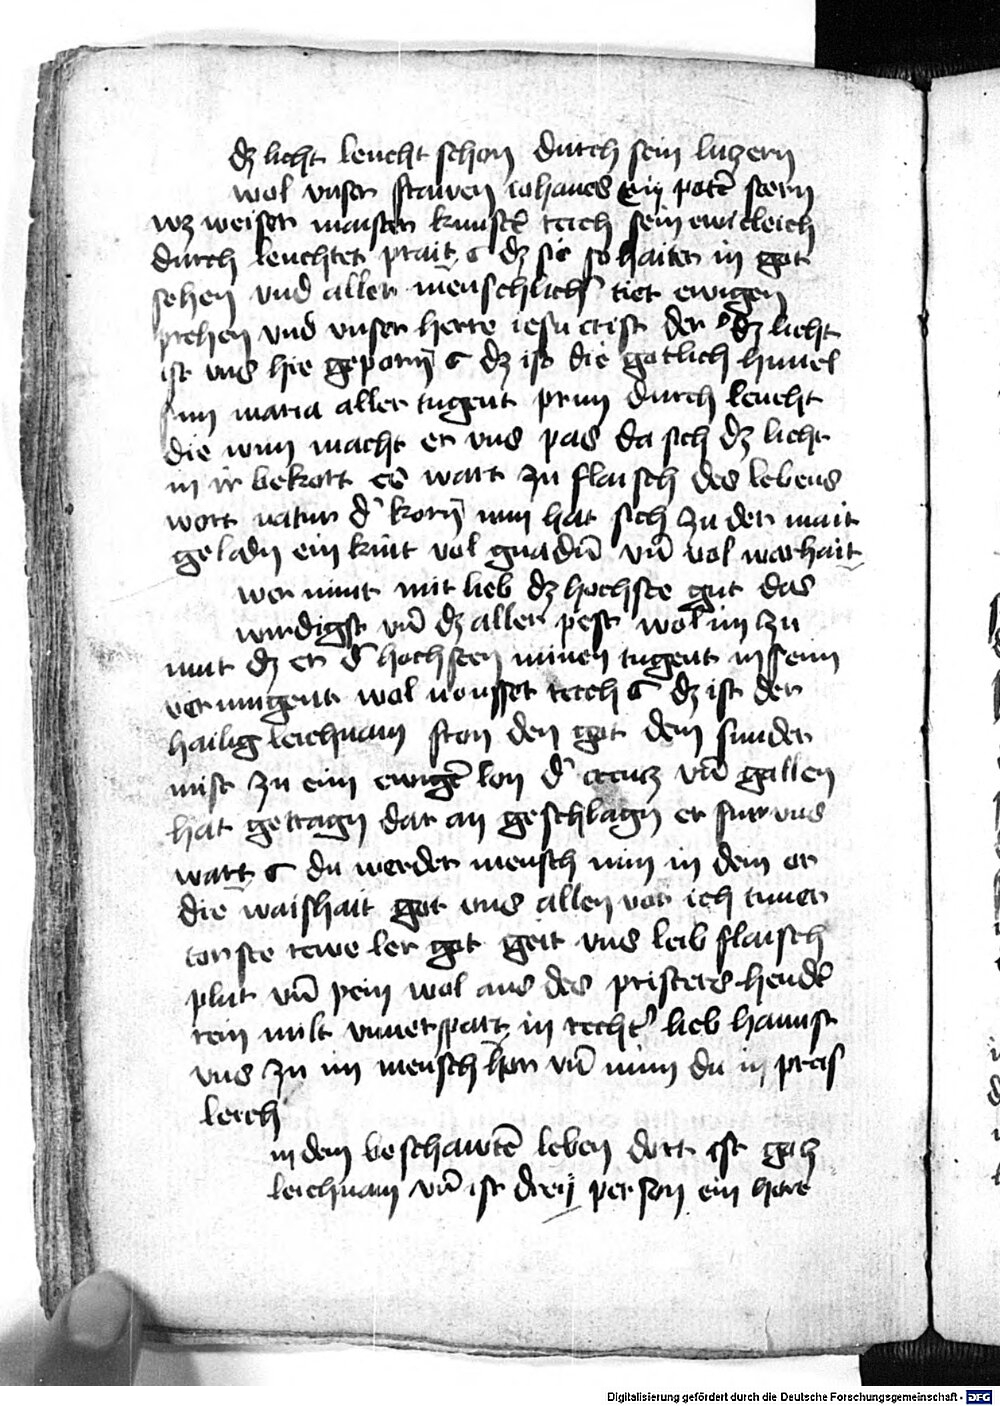 dz licht leucht schon durch sein luczern
wol unser frawen iohanes ein pot stern
wz weiser maister kunst reich sein ewicleich
durch leuchtet prait dz sie so haiter in got
sehen und aller menschlich tiet ewigen
prehen und unser herre iesu crist der dz licht
ist uns hie geporn dz ist die gotlich himel
sun maria aller tugent prun durch leucht
die wun macht er uns pas da sich dz licht
in ir bekort er wart zu flaisch des lebens
wort natur d korn nun hat sich zu der mait
geladn ein kint vol gnadn un vol warhait
wer nimt mit lieb dz hochste gut das
wirdigst un dz aller pest wol im zu
mut dz er d hochsten minen tugent in seim
vermugent wol reich dz ist der
hailig leichnam fron den got dem sunder
mist zu eim ewige lon d creucz un gallen
hat getragn dar an geschlagn er fur uns
wart du werder mensch nim in dein or
die waishait got uns allen vor ich
got geit uns leib flaisch
plut un pein wol aus des pristers hend
rein milt unverspart in recht lieb haimst
uns zu im mensch hor un nim du in preis
leich
in dem beschawte leben dort ist gotz
leichnam un ist dreÿ person ein here
Digitalisierung gefördert durch die Deutsche Forschungsgemeinschaft - DFG